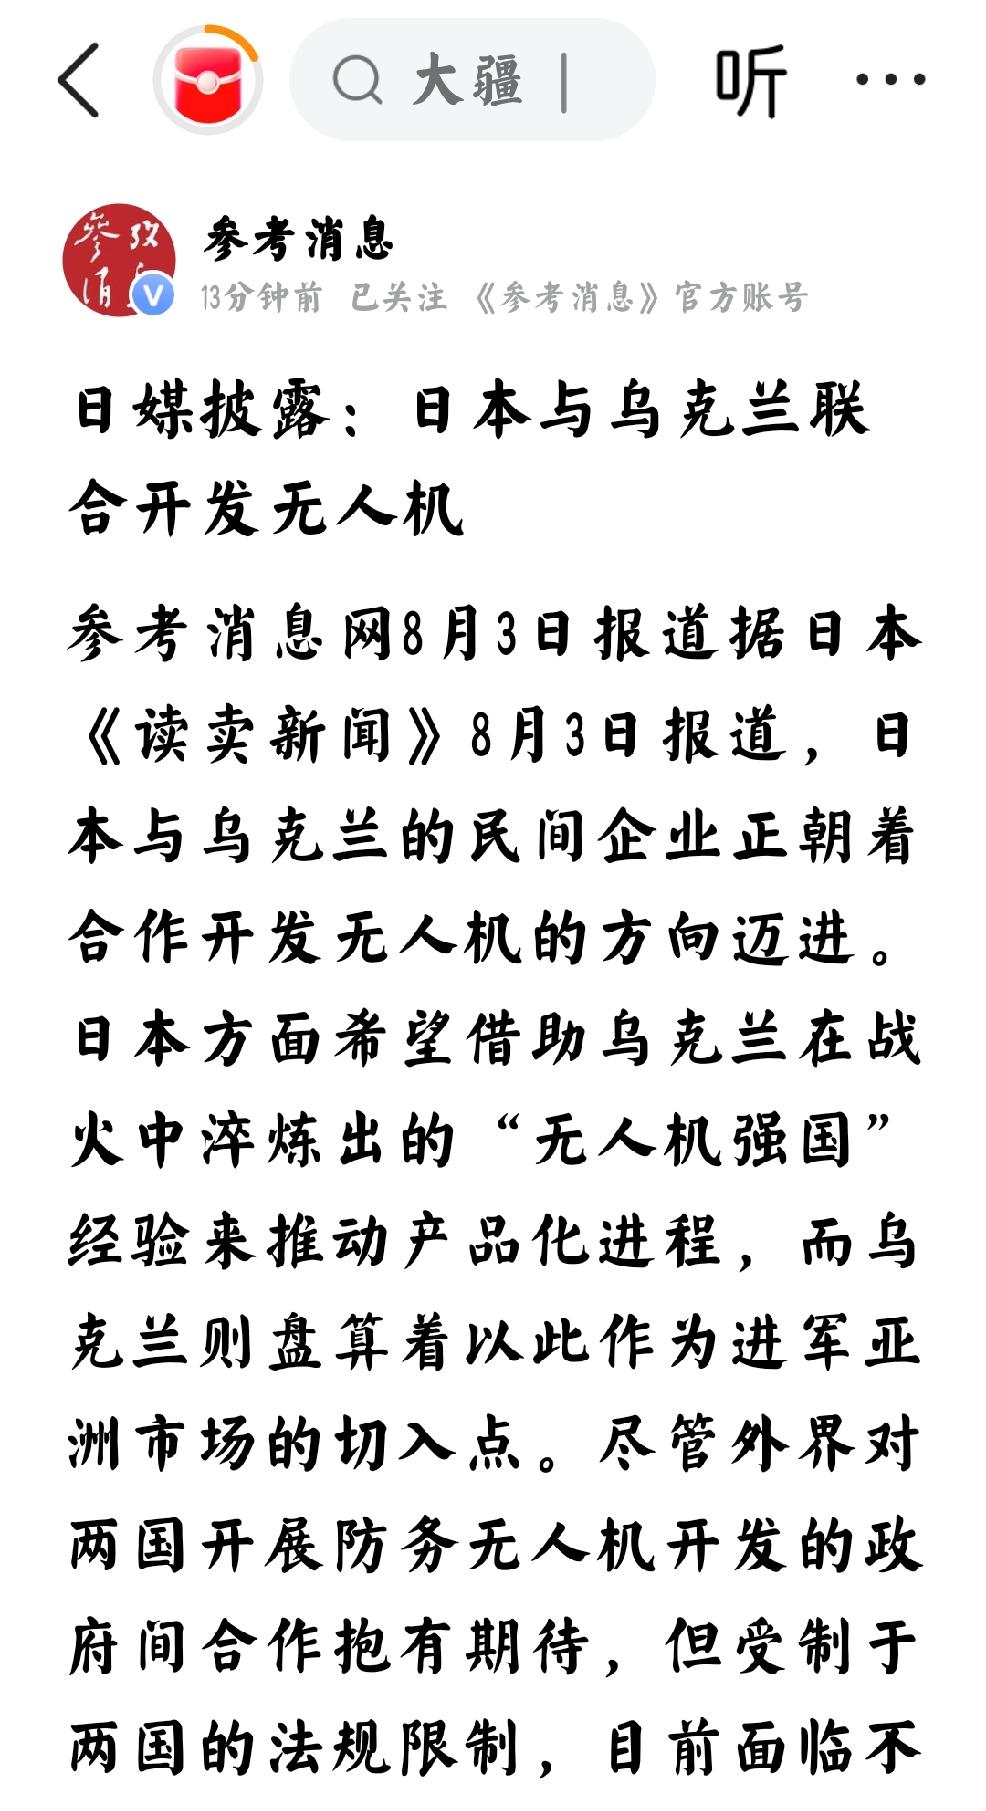 大疆
听
参考消息
13分钟前 已关注 《参考消息》官方账号
日媒披露：日本与乌克兰联
合开发无人机
参考消息网8月3日报道据日本
《读卖新闻》8月3日报道，日
本与乌克兰的民间企业正朝着
合作开发无人机的方向迈进。
日本方面希望借助乌克兰在战
火中淬炼出的“无人机强国”
经验来推动产品化进程，而乌
克兰则盘算着以此作为进军亚
洲市场的切入点。尽管外界对
两国开展防务无人机开发的政
府间合作抱有期待，但受制于
两国的法规限制，目前面临不